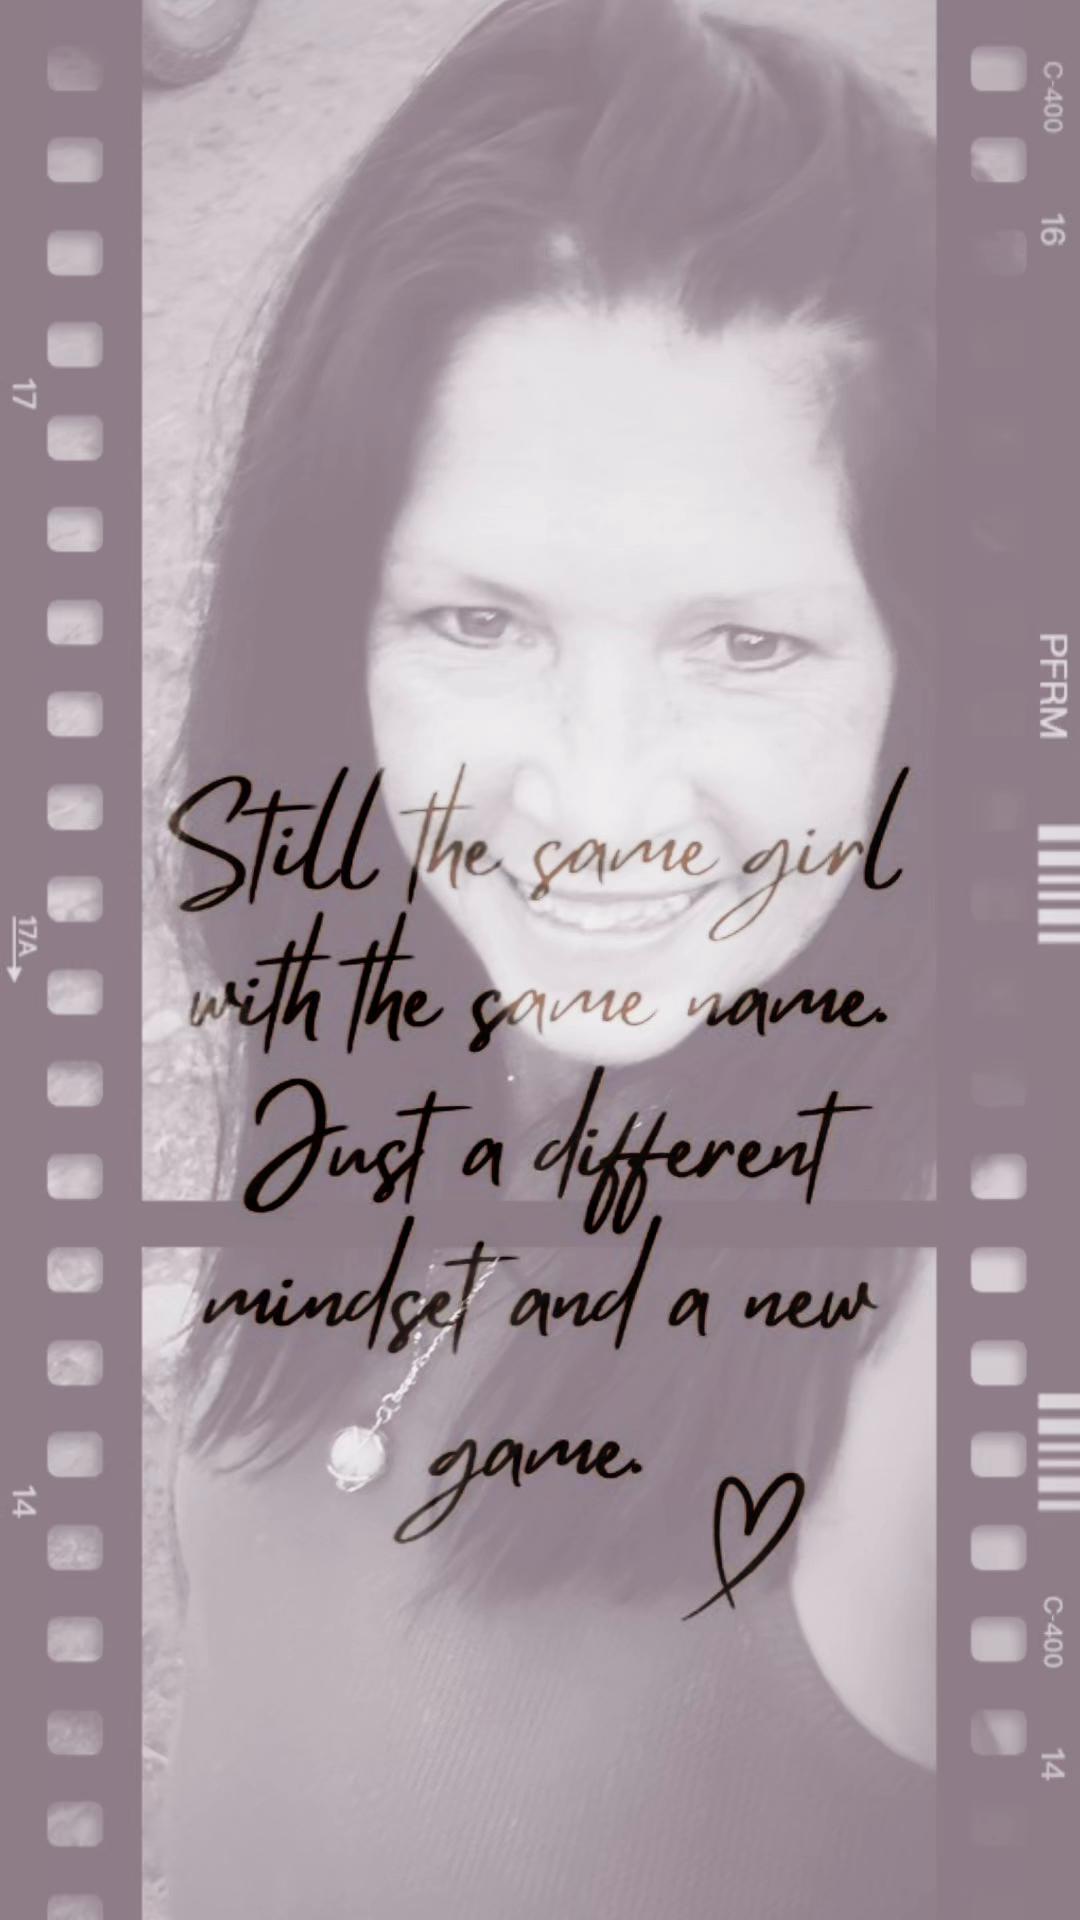 Still the same girl
with the same name.
Just a different
mindset and a new
game.
C-400
16
17
PFRM
17A
14
C-400
14